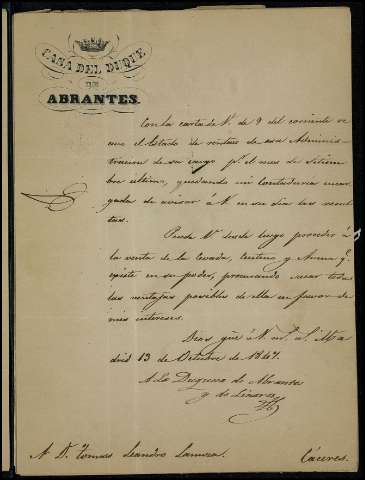 CASA DEL DUQUE
DE
ABRANTES.
Con la carta de V. de 9 del corriente re
cive el Estado de rentas de esa Adminis-
tracion de su cargo pr. el mes de Setiem
bre ultimo, quedando mi Contaduria encar
gada de avisar á V. en su dia las resul
tas.
Puede V. desde luego proceder á
la venta de la Cevada, Centeno y Avena q.
existe en su poder, procurando sacar todas
las ventajas posibles de ella en favor de
mis intereses.
Dios güe á V. m. a. Ma
drid 13 de Octubre de 1847.
La Duquesa de Abrantes
y de Linares
A D. Tomas Leandro
Cáceres.